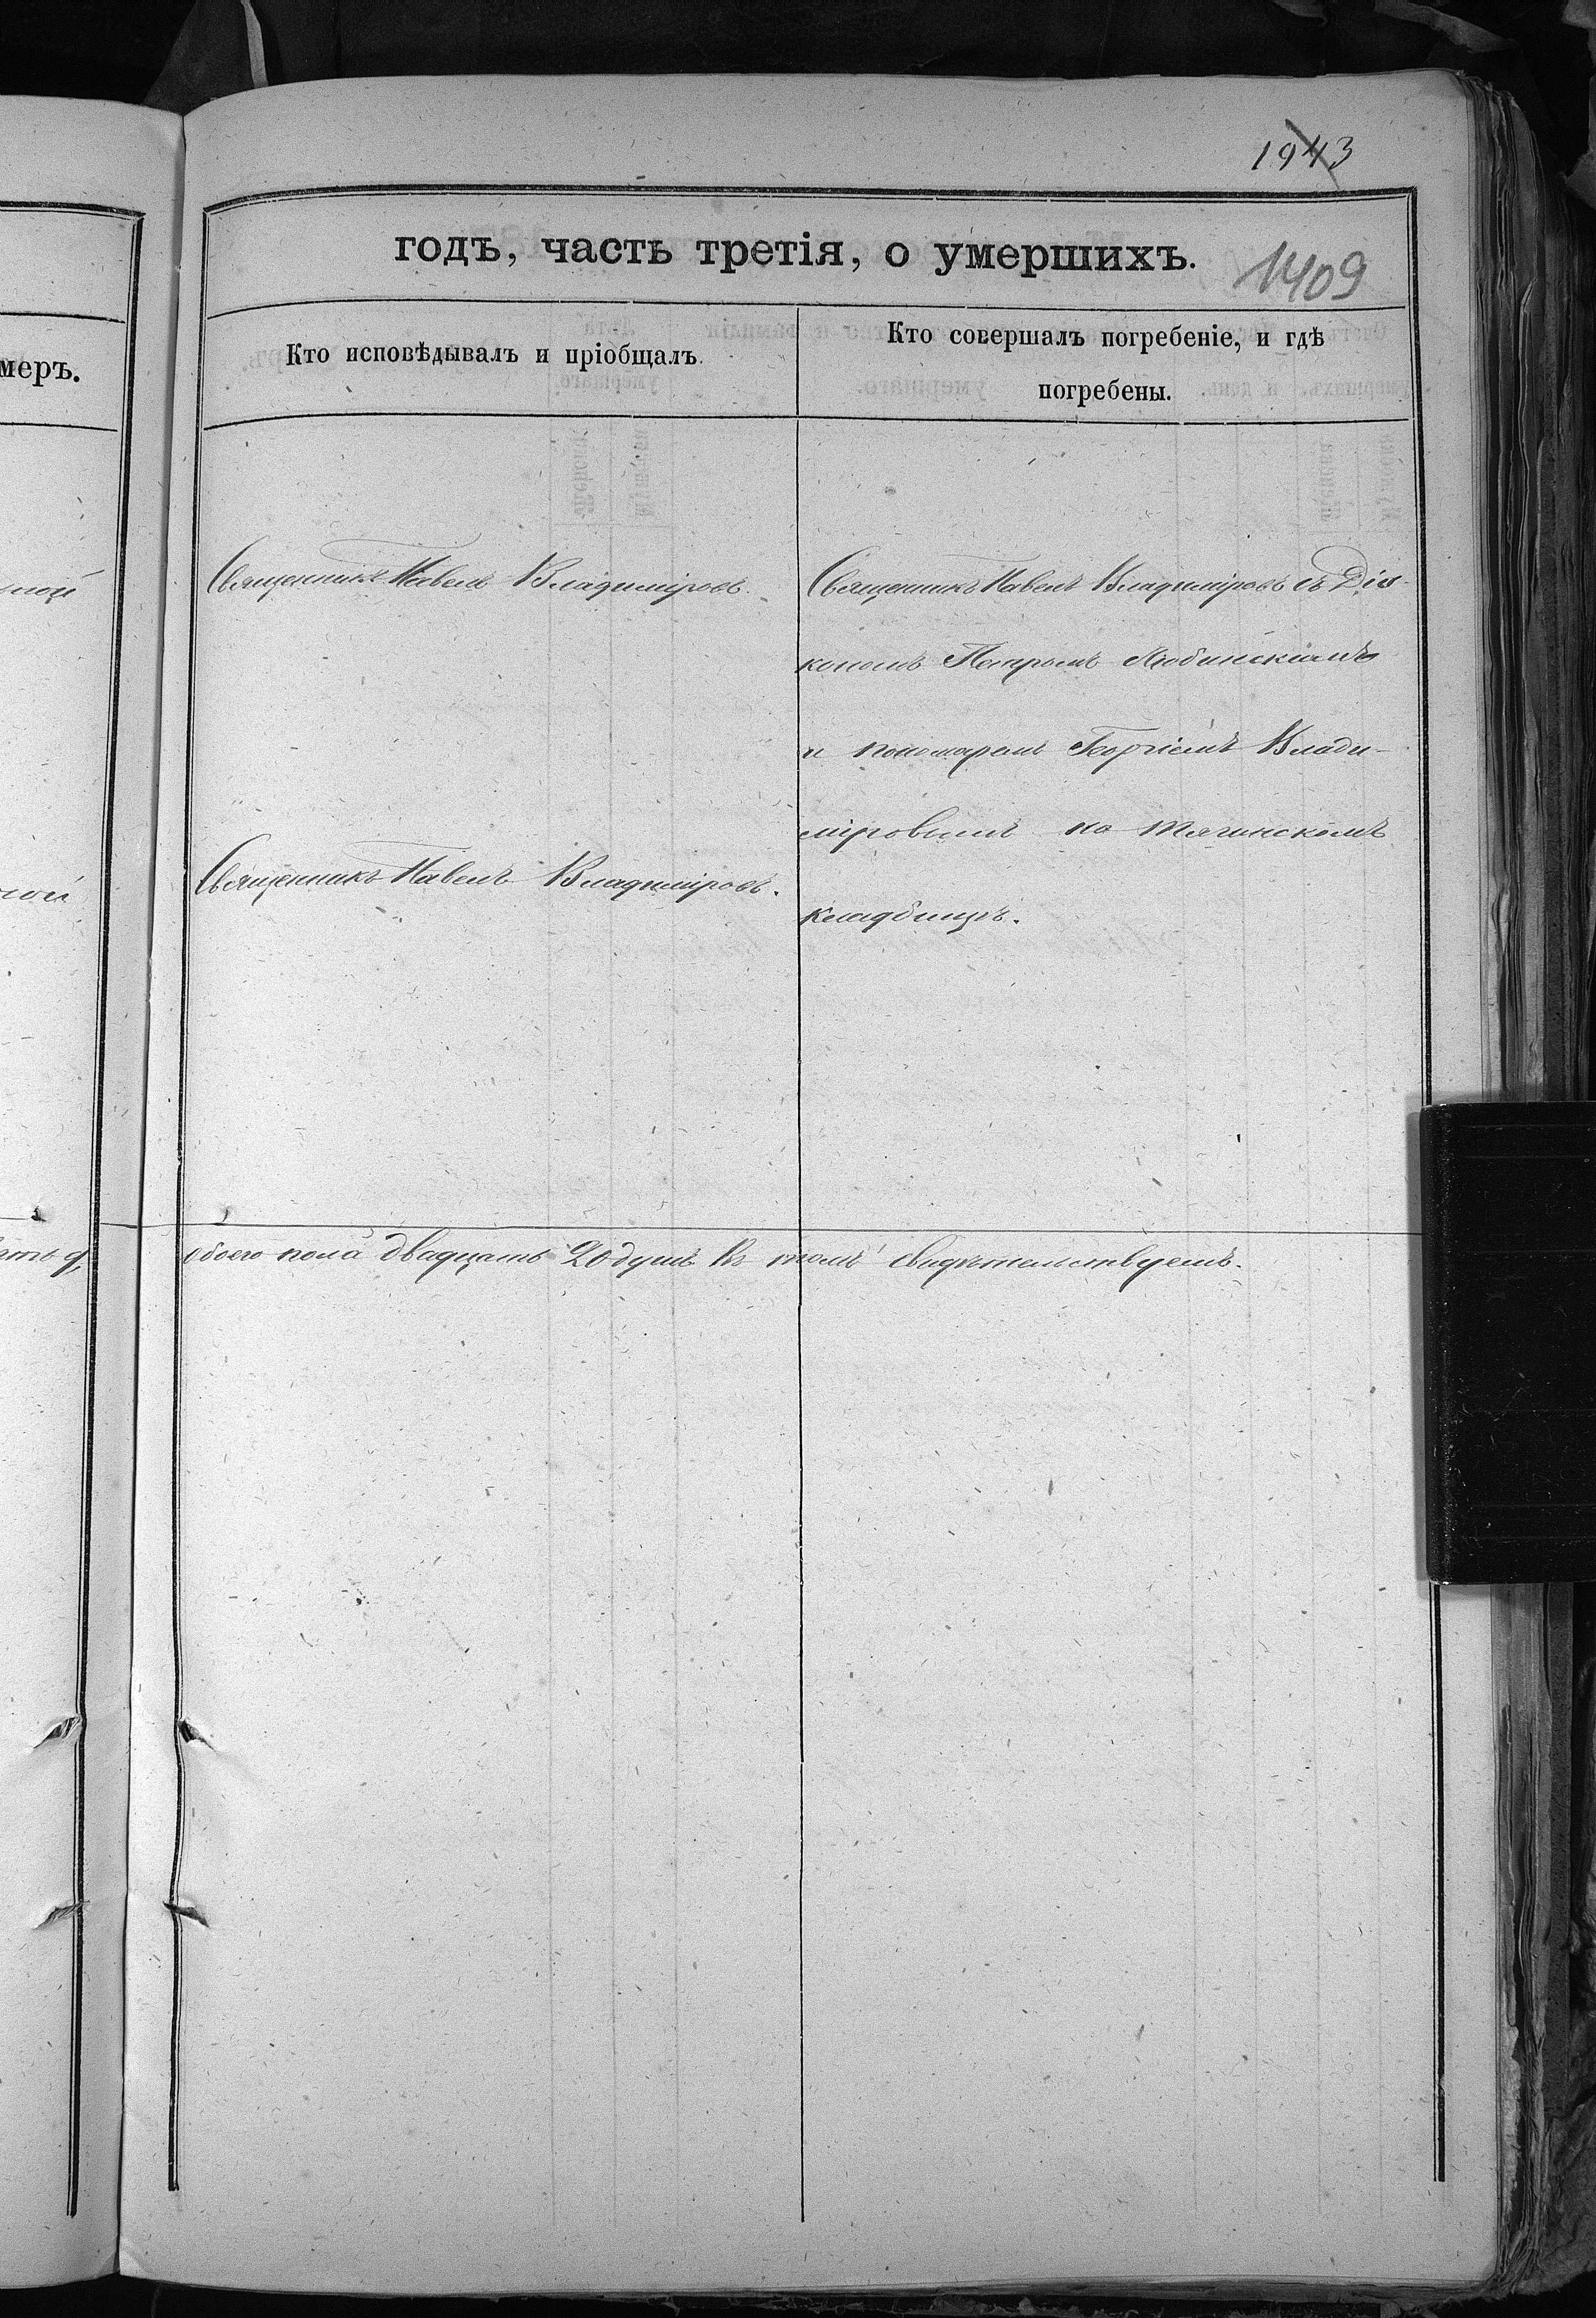 1943
годъ, часть третія, о умершихъ.
1409
меръ.
Кто исповѣдывалъ и пріобщалъ.
Кто совершалъ погребеніе, и гдѣ
погребены.
Священникъ Павелъ Владиміровъ.
Священникъ Павелъ Владиміровъ съ Діа-
кономъ Петромъ Любинскимъ
и пономаремъ Георгіемъ Влади-
міровымъ на Тягинскомъ
кладбищѣ.
Священникъ Павелъ Владиміровъ.
обоего пола двадцать 20 душъ Въ томъ свидѣтельствуемъ.